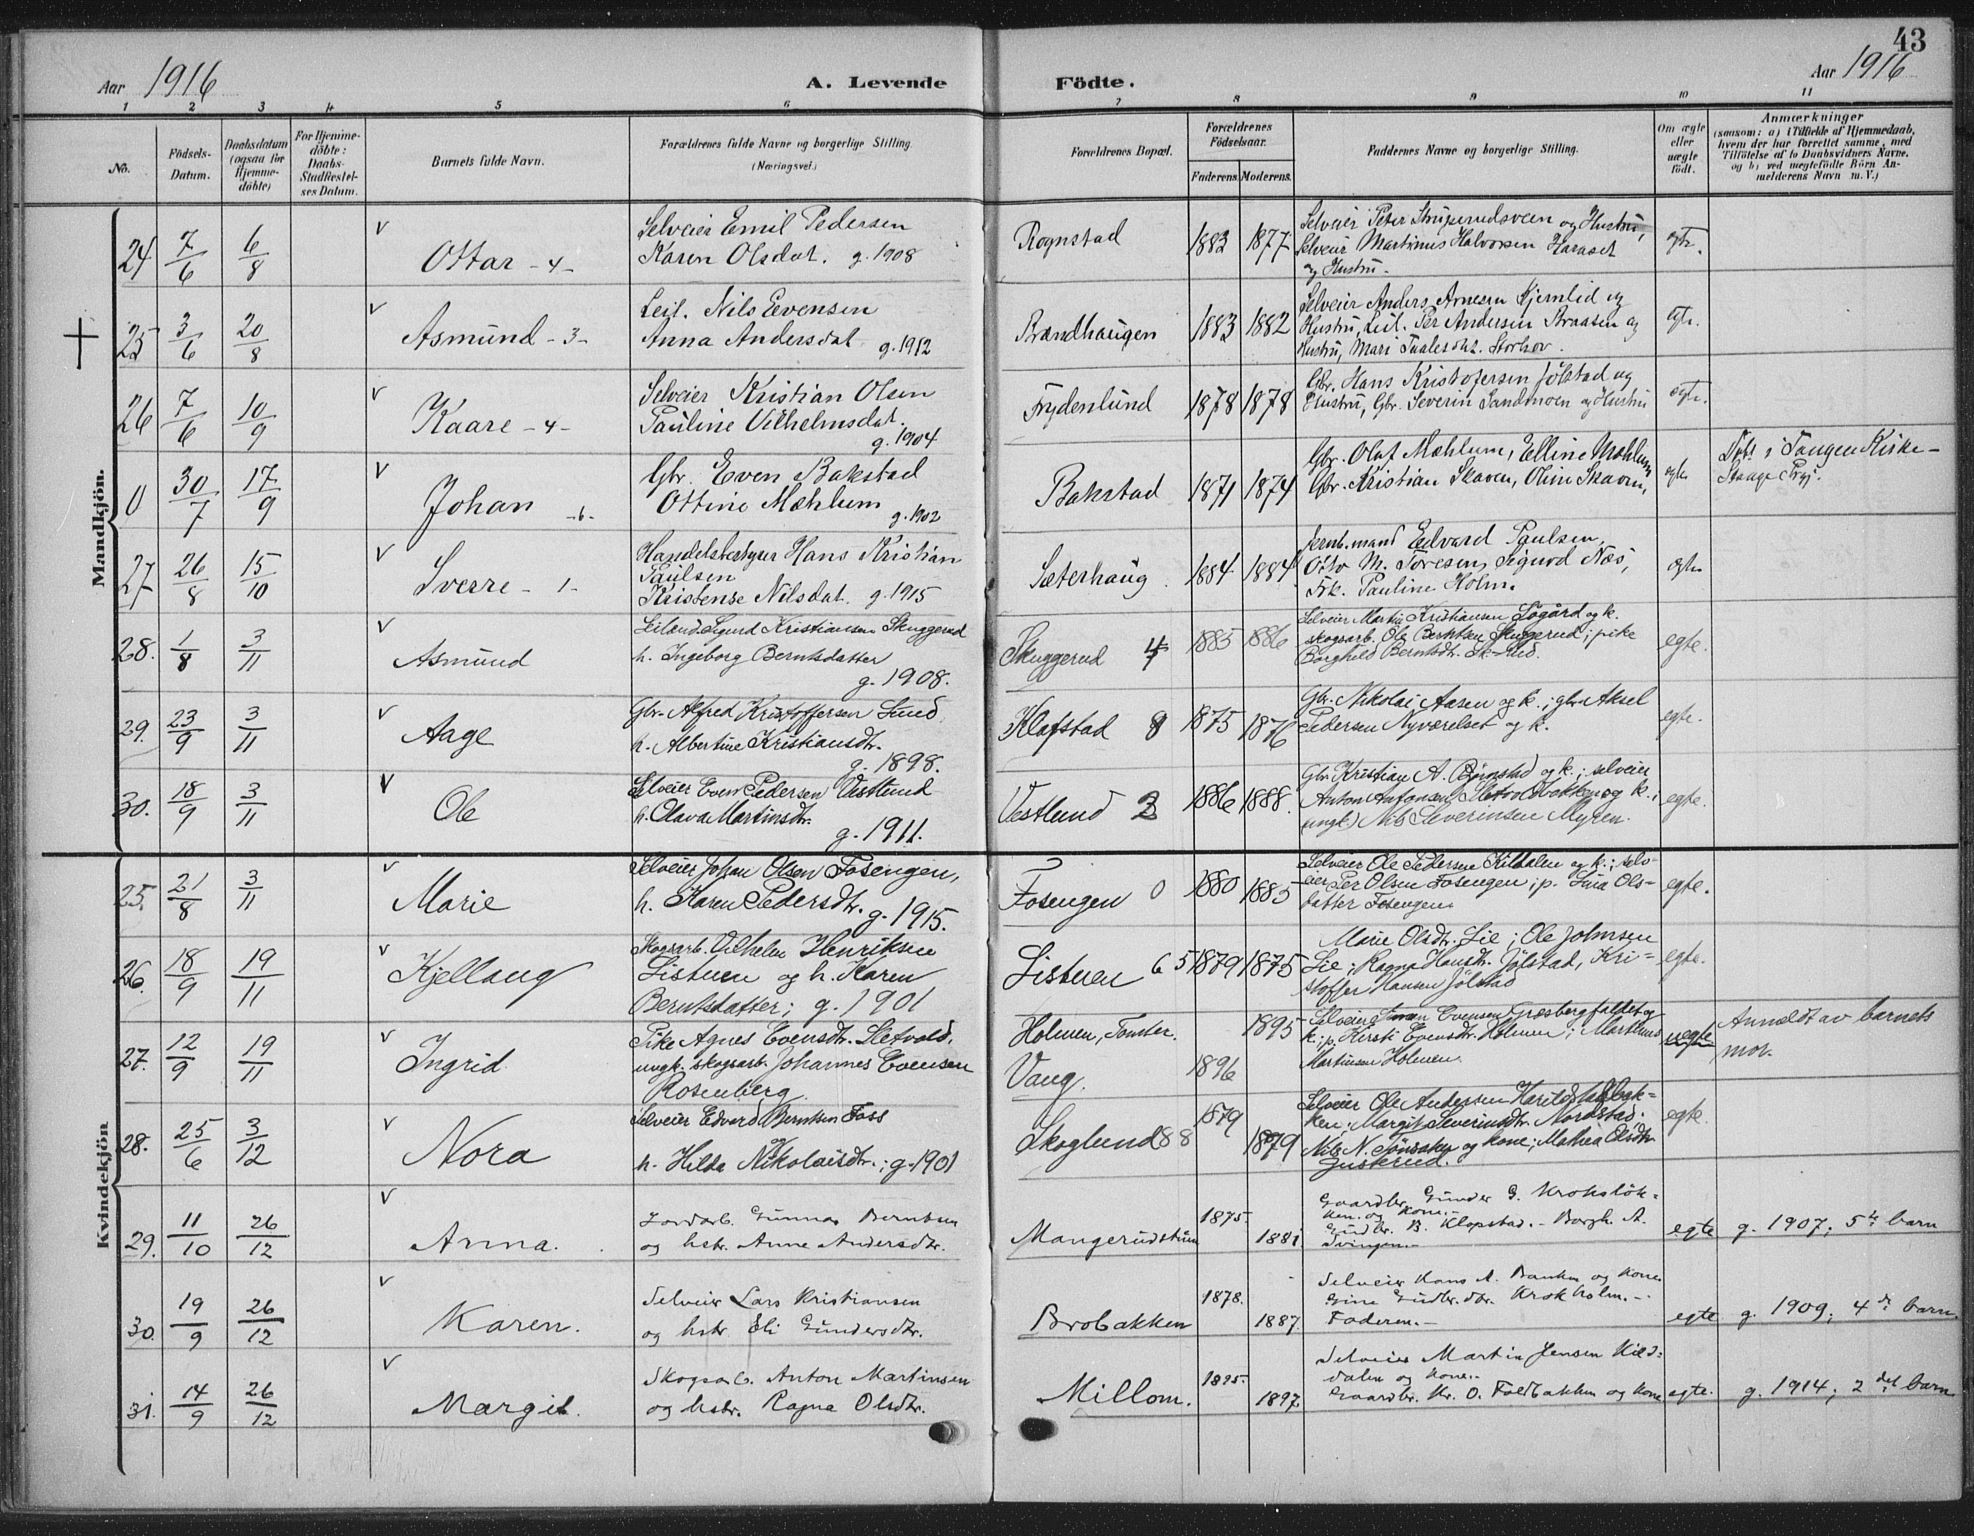 43
Aar 1916
A. Levende Födte.
Aar 1916
1 2 3 4 5 6 7 8 9 10 11
No.
Födsels-
Datum.
Daabsdatum
(ogsaa for
Hjemme-
döbte)
For Hjemme-
döbte:
Daabs-
Stadfæstel-
ses Datum.
Barnets fulde Navn.
Forældrenes fulde Navne og borgerlige Stilling
(Næringsvei.)
Forældrenes Bopæl.
Forældrenes
Födselsaar.
Faderens. Moderens.
Faddernes Navne og borgerlige Stilling.
Om ægte
eller
uægte
födt.
Anmærkninger
(saasom: a) i Tilfælde af Hjemmedaab,
hvem der har forrettet samme, med
Tilföielse af to Daabsvidners Navne,
og b) ved uægtefödte Börn An-
melderens Navn m. V.)
Mandkjön.
24 7/6 6/8 v Ottar - 4 -
Selveier Emil Pedersen
Karen Olsdat. g. 1908
Rognstad 1883 1877
Selveier Peter og Hustru,
Selveier Martinus Halvorsen Haraset
og Hustru.
egte.
25 3/6 20/8 v Asmund - 3 -
Leil. Nils Evensen
Anna Andersdat g. 1912
Brændhaugen 1883 1882
Selveier Anders Arnesen Kjernlid og
Hustru, Leil. Per Andersen Braasen og
Hustru, Mari Storhov.
egte.
26 7/6 10/9 v Kaare - 4 -
Selveier Kristian Olsen
Pauline Vilhelmsdat.
g. 1904
Frydenlund 1878 1878
Gbr. Hans Kristofersen Jølstad og
Hustru, Gbr. Severin Sandmoen og Hustru
egte.
0 30/7 17/9 v Johan - 6 -
Gbr. Even Bakstad
Ottine Mæhlum g. 1902
Bakstad 1871 1874
Gbr. Olaf Mæhlum, Elline Mæhlum
Gbr. Kristian Skaven, Oline Skaven,
egte
Døbt i Tangen Kirke -
Stange Prgj.
27 26/8 15/10 v Sverre - 1 -
Handelsbestyrer Hans Kristian
Paulsen
Kristense Nilsdat. g. 1915
Sæterhaug 1884 1884
Jernb.mand Edvard Paulsen,
Otto M. Toresen, Sigurd Næs,
Frk. Pauline Holm.
egte
28. 1/8 3/11 v Asmund
Leilænd. Sigurd Kristiansen Skuggerud
h. Ingeborg Berntsdatter
g. 1908.
Skuggerud 4 1885 1886
Selveier Martin Kristiansen Søgård og k.
skogsarb. Ole Berntsen Skuggerud; pike
Borghild Berntsdt.
egte.
29. 23/9 3/11 v Aage
Gbr. Alfred Kristoffersen Lund
h. Albertine Kristiansdtr.
g. 1898.
Klafstad 8 1875 1876
Gbr. Nikolai Aasen og k.; gbr. Aksel
Pedersen Nyværelset og k.
egte.
30. 18/9 3/11 v Ole
Selveier Even Pedersen Vestlund
h. Olava Martinsdtr.
g. 1911.
Vestlund 1886 1888.
Gbr. Kristian A. Bjørnstad og k.; selveier
Anton Antonsen Sletvoldbakken og k.;
(ungk.) Nils Severinsen Myren.
egte.
Kvindekjön
25. 21/8 3/11 v Marie
Selveier Johan Olsen Fosengen,
h. Karen Pedersdtr. g. 1915.
Fosengen 0 1880 1885
Selveier Ole Pedersen Kildalen og k.; selv-
eier Per Olsen Fosengen; p. Lina Ols-
datter Fosengen
egte.
26. 18/9 19/11 v Kjellaug
Skogsarb. Vilhelm Henriksen
Listuen og h. Karen
Berntsdatter; g. 1901
Listuen 6 5 1879 1875
Marie Olsdtr. Lie; Ole Johnsen
Lie; Ragna Hansdtr. Jølstad, Kri-
stoffer Hansen Jølstad
egte.
27. 12/9 19/11 v Ingrid
Pike Agnes Evensdtr. Sletvold,
ungk. skogsarb. Johannes Evensen
Rosenberg.
Holmen, Tomter.
Vang. 1896 1895
Selveier Evensen Græsbergfaldet og
k.; p. Kirsti Evensdtr. Holmen;
Martinsen Holmen.
uegte
Anmeldt av barnets
mor.
28. 25/6 3/12 v Nora
Selveier Edvard Berntsen Foss
og
h. Hilda Nikolaisdtr.; g. 1901
Skoglund 8 8 1879 1879
Selveier Ole Andersen
ken; Margit Severinsdtr. Nordstad.
Nils N. og kone; Mathea Olsdtr.
egte.
29. 11/10 26/12 v Anna.
Jordarb. Gunnar Berntsen
og hstr. Anne Andersdtr.
Mangerudstuen 1875. 1881
Gaardbr. Gunder G. Krokslök-
ken. og kone.-
Gudbr. B. Klopstad.- Borgh. A.
Svingen.-
egte g. 1907; 5te barn
30. 19/9 26/12 v Karen.
Selveier Lars Kristiansen
og hstr. Eli Gundersdtr.
Brobakken 1878. 1887.
Selveier Hans A. Banken og kone
Gine Gudbr.dtr. Krokholm.-
Faderen.-
egte g. 1909; 4de barn.
31. 14/9 26/12 v Margit.
Skogsarb. Anton Martinsen
og hstr. Ragna Olsdtr.
Millom. 1895. 1897.
Selveier Martin Jensen Kild-
dalen og kone.-
Gaardbr. Kr. O. Faldbakken og kone
egte. g. 1914; 2det barn